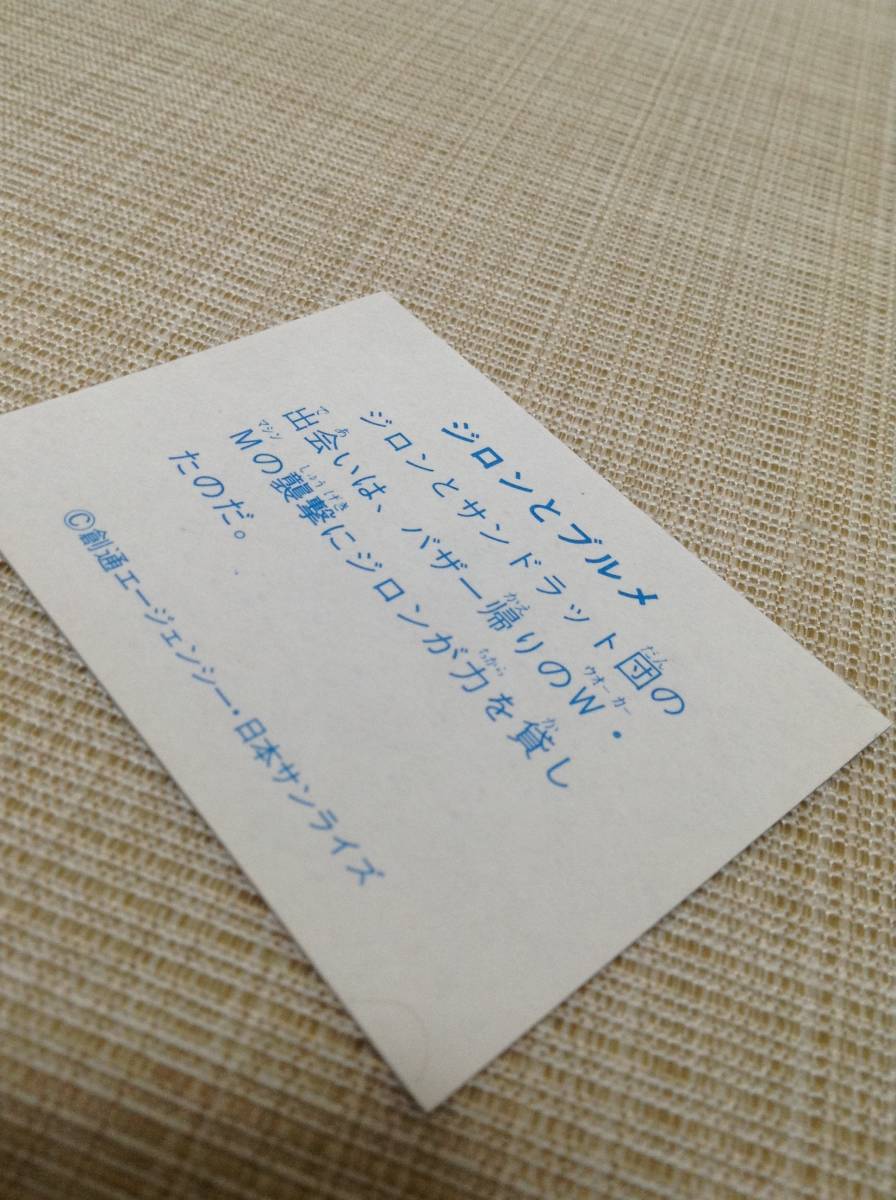 ジロンとブルメ
ジロンとサンドラット団の
出会いは、バザー帰りのW・
Mの襲撃にジロンが力を貸し
たのだ。
©創通エージェンシー・日本サンライズ